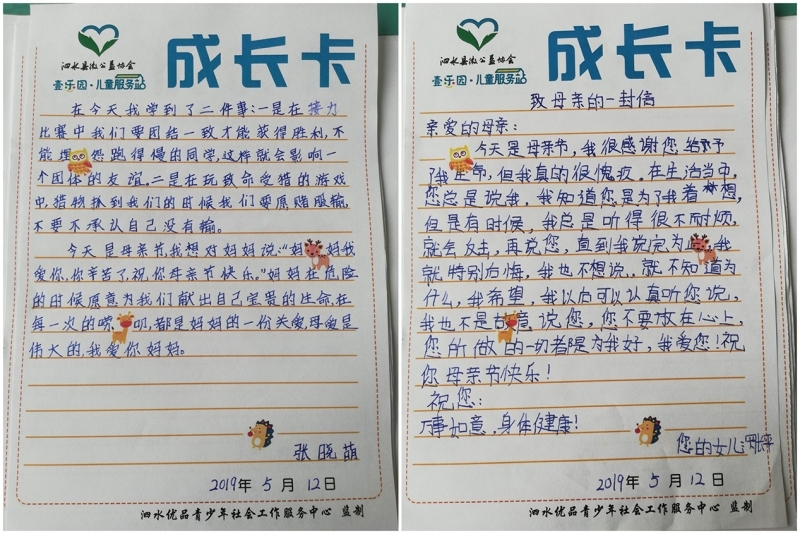 泗水县微公益协会
壹乐园·儿童服务站
成长卡
在今天我学到了二件事:一是在接力
比赛中我们要团结一致才能获得胜利,不
能埋怨跑得慢的同学,这样就会影响一
个团体的友谊。二是在玩致命受猎的游戏
中,猎物抓到我们的时候我们要愿赌服输,
不要不承认自己没有输。
今天是母亲节,我想对妈妈说:“妈妈我
爱你,你辛苦了,祝你母亲节快乐。”妈妈在危险
的时候愿意为我们献出自己宝贵的生命,在
每一次的唠叨,都是妈妈的一份关爱,母爱是
伟大的,我爱你妈妈。
张晓萌
2019年 5月 12日
泗水优品青少年社会工作服务中心 监制
泗水县微公益协会
壹乐园·儿童服务站
成长卡
致母亲的一封信
亲爱的母亲:
今天是母亲节,我很感谢您给予
了我生命,但我真的很愧疚。在生活当中,
您总是说我,我知道您是为了我着想,
但是有时候,我总是听得很不耐烦,
就会反击,再说您,直到我说完为止,我
就特别后悔,我也不想说,就不知道为
什么,我希望,我以后可以认真听您说,
我也不是故意说您,您不要放在心上,
您所做的一切都是为我好,我爱您!祝
你母亲节快乐!
祝您:
万事如意,身体健康!
您的女儿:
2019年 5月 12日
泗水优品青少年社会工作服务中心 监制